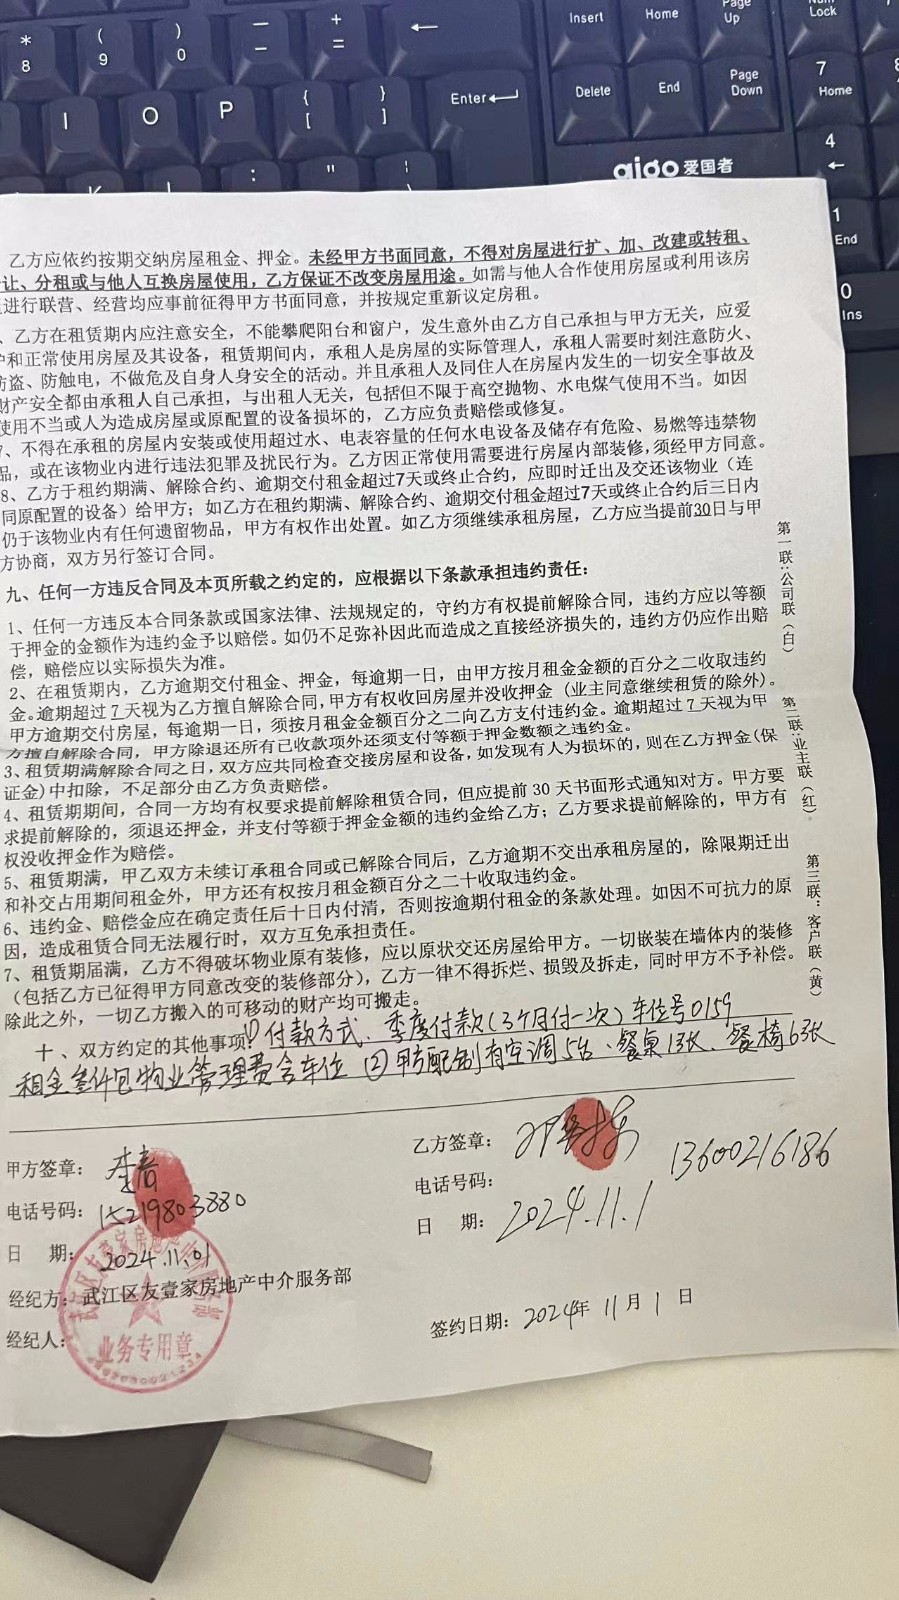 * 8
( 9
) 0
— -
+ =
←
Insert
Home
Page Up
Num Lock
I
O
P
{ [
} ]
Enter
Delete
End
Page Down
7 Home
4 ←
aigo 爱国者
1 End
0 Ins
乙方应依约按期交纳房屋租金、押金。未经甲方书面同意，不得对房屋进行扩、加、改建或转租、
让、分租或与他人互换房屋使用，乙方保证不改变房屋用途。如需与他人合作使用房屋或利用该房
进行联营、经营均应事前征得甲方书面同意，并按规定重新议定房租。
、乙方在租赁期内应注意安全，不能攀爬阳台和窗户，发生意外由乙方自己承担与甲方无关，应爱
护和正常使用房屋及其设备，租赁期间内，承租人是房屋的实际管理人，承租人需要时刻注意防火、
防盗、防触电，不做危及自身人身安全的活动。并且承租人及同住人在房屋内发生的一切安全事故及
财产安全都由承租人自己承担，与出租人无关，包括但不限于高空抛物、水电煤气使用不当。如因
使用不当或人为造成房屋或原配置的设备损坏的，乙方应负责赔偿或修复。
7、不得在承租的房屋内安装或使用超过水、电表容量的任何水电设备及储存有危险、易燃等违禁物
品，或在该物业内进行违法犯罪及扰民行为。乙方因正常使用需要进行房屋内部装修，须经甲方同意。
8、乙方于租约期满、解除合约、逾期交付租金超过7天或终止合约，应即时迁出及交还该物业（连
同原配置的设备）给甲方；如乙方在租约期满、解除合约、逾期交付租金超过7天或终止合约后三日内
仍于该物业内有任何遗留物品，甲方有权作出处置。如乙方须继续承租房屋，乙方应当提前30日与甲
方协商，双方另行签订合同。
九、任何一方违反合同及本页所载之约定的，应根据以下条款承担违约责任：
1、任何一方违反本合同条款或国家法律、法规规定的，守约方有权提前解除合同，违约方应以等额
于押金的金额作为违约金予以赔偿。如仍不足弥补因此而造成之直接经济损失的，违约方仍应作出赔
偿，赔偿应以实际损失为准。
2、在租赁期内，乙方逾期交付租金、押金，每逾期一日，由甲方按月租金金额的百分之二收取违约
金。逾期超过 7 天视为乙方擅自解除合同，甲方有权收回房屋并没收押金（业主同意继续租赁的除外）。
甲方逾期交付房屋，每逾期一日，须按月租金金额百分之二向乙方支付违约金。逾期超过 7 天视为甲
方擅自解除合同，甲方除退还所有已收款项外还须支付等额于押金数额之违约金。
3、租赁期满解除合同之日，双方应共同检查交接房屋和设备，如发现有人为损坏的，则在乙方押金(保
证金)中扣除，不足部分由乙方负责赔偿。
4、租赁期期间，合同一方均有权要求提前解除租赁合同，但应提前 30 天书面形式通知对方。甲方要
求提前解除的，须退还押金，并支付等额于押金金额的违约金给乙方；乙方要求提前解除的，甲方有
权没收押金作为赔偿。
5、租赁期满，甲乙双方未续订承租合同或已解除合同后，乙方逾期不交出承租房屋的，除限期迁出
和补交占用期间租金外，甲方还有权按月租金额百分之二十收取违约金。
6、违约金、赔偿金应在确定责任后十日内付清，否则按逾期付租金的条款处理。如因不可抗力的原
因，造成租赁合同无法履行时，双方互免承担责任。
7、租赁期届满，乙方不得破坏物业原有装修，应以原状交还房屋给甲方。一切嵌装在墙体内的装修
（包括乙方已征得甲方同意改变的装修部分），乙方一律不得拆烂、损毁及拆走，同时甲方不予补偿。
除此之外，一切乙方搬入的可移动的财产均可搬走。
十、双方约定的其他事项：① 付款方式、季度付款（3个月付一次）车位号0159
租金 包物业管理费含车位 ②甲方配制有空调5台、餐桌1张、餐椅6张
第一联：公司联（白）
第二联：业主联（红）
第三联：客户联（黄）
甲方签章：李春
电话号码：15219803880
日 期：2024.11.01
经纪方：武江区友壹家房地产中介服务部
经纪人：
业务专用章
乙方签章：
电话号码：13600216186
日 期：2024.11.1
签约日期：2024年 11月 1 日